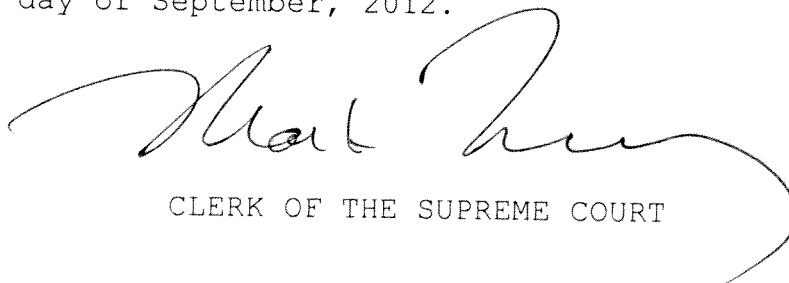 day of September, 2012.
Mark
CLERK OF THE SUPREME COURT